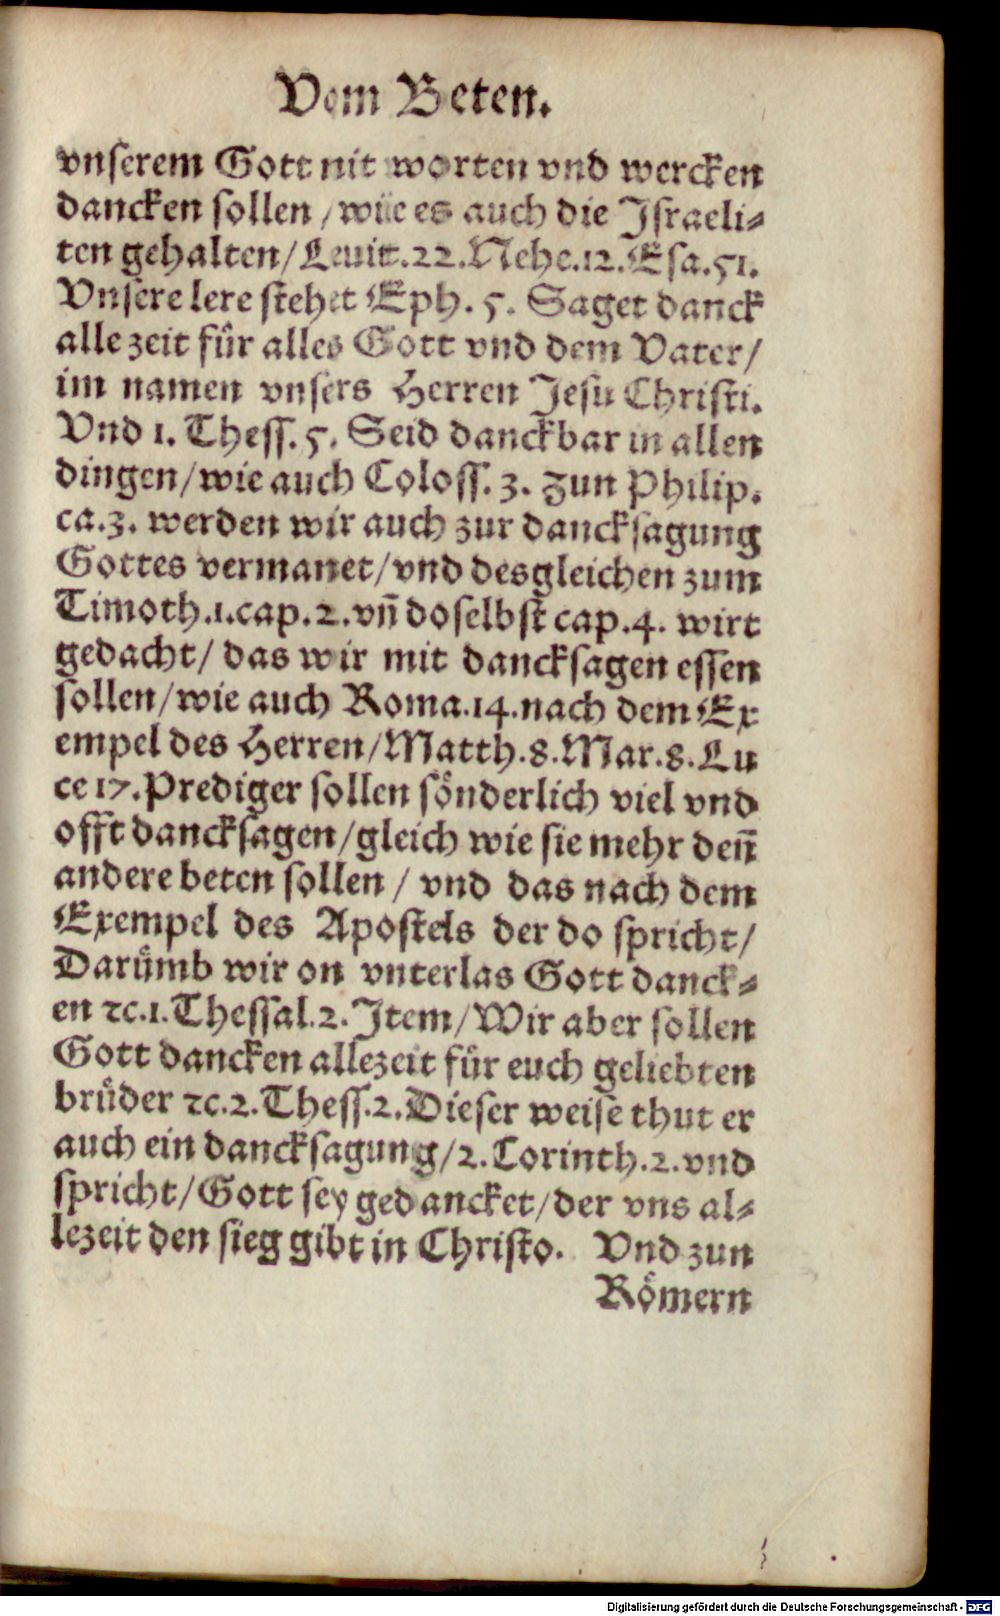 Vom Beten.
vnserem Gott nit worten vnd wercken
dancken sollen / wie es auch die Jsraeli⸗
ten gehalten / Leuit. 22. Nehe. 12. Esa. 51.
Vnsere lere stehet Eph. 5. Saget danck
alle zeit fuͤr alles Gott vnd dem Vater /
im namen vnsers Herren Jesu Christi.
Vnd 1. Thess. 5. Seid danckbar in allen
dingen / wie auch Coloss. 3. Zun Philip.
ca. 3. werden wir auch zur dancksagung
Gottes vermanet / vnd desgleichen zum
Timoth. 1. cap. 2. vñ doselbst cap. 4. wirt
gedacht / das wir mit dancksagen essen
sollen / wie auch Roma. 14. nach dem Ex
empel des Herren / Matth. 8. Mar. 8. Lu
ce 17. Prediger sollen soͤnderlich viel vnd
offt dancksagen / gleich wie sie mehr deñ
andere beten sollen / vnd das nach dem
Exempel des Apostels der do spricht /
Daruͤmb wir on vnterlas Gott danck⸗
en ⁊c. 1. Thessal. 2. Jtem / Wir aber sollen
Gott dancken allezeit fuͤr euch geliebten
bruͤder ⁊c. 2. Thess. 2. Dieser weise thut er
auch ein dancksagung / 2. Corinth. 2. vnd
spricht / Gott sey gedancket / der vns al⸗
lezeit den sieg gibt in Christo. Vnd zun
Roͤmern
Digitalisierung gefördert durch die Deutsche Forschungsgemeinschaft - DFG